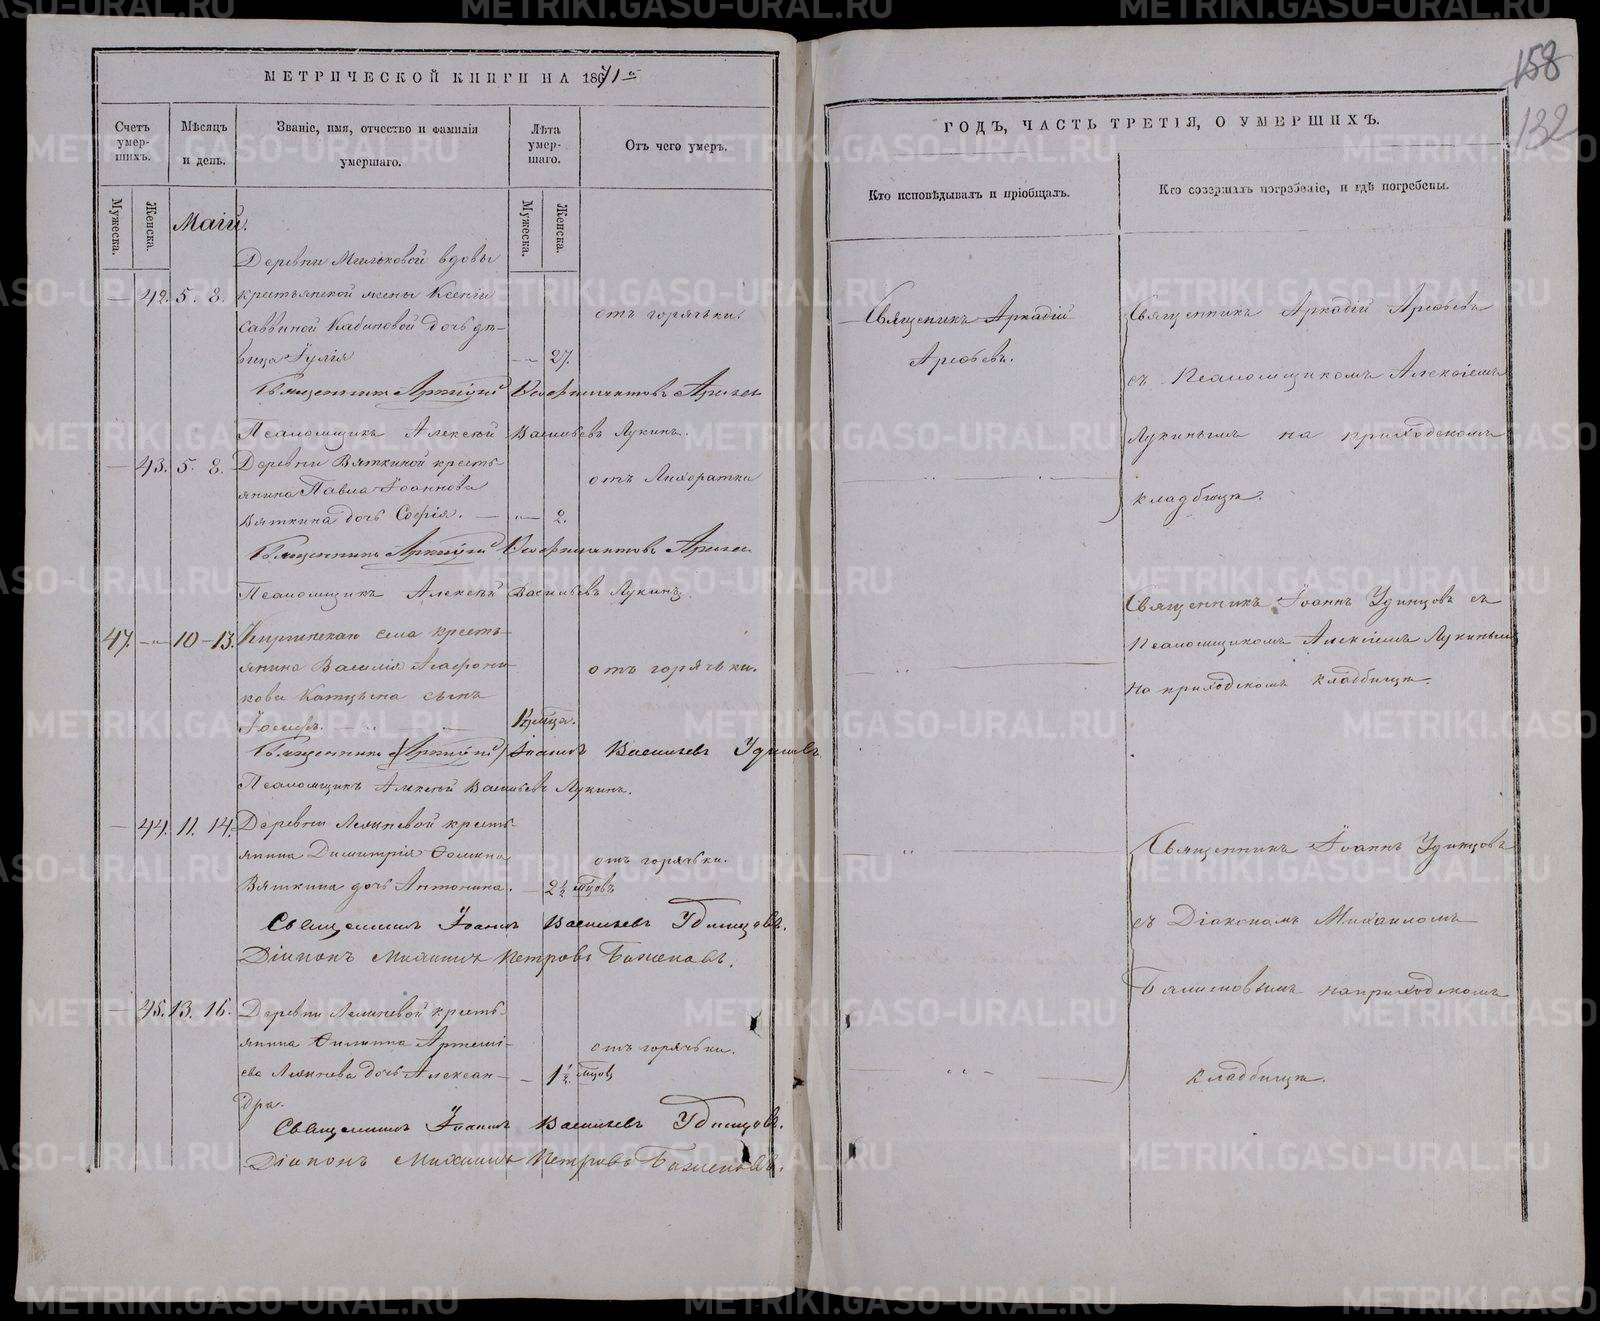 МЕТРИЧЕСКОЙ КНИГИ НА 1871й
Счетъ умер-
шихъ.
Мѣсяцъ
и день.
Званіе, имя, отчество и фамилія
умершаго.
Лѣта
умер-
шаго.
Отъ чего умеръ.
Мужеска.
Женска.
Мужеска.
Женска.
Маій.
Деревни Мыльковой вдовы
— 42. 5. 8. крестьянской жены Ксеніи
Саввиной Кабиновой дочь дѣ-
вица Іулія — 27. отъ горячки.
Священникъ Аркадій Арефьевъ
Псаломщикъ Алексѣй Васильевъ Лукинъ.
— 43. 5. 8. Деревни Вяткиной кресть-
янина Павла Іоаннова отъ Лихорадки
Вяткина дочь Софія. — „— 2.
Священникъ Аркадій Арефьевъ
Псаломщикъ Алексѣй Васильевъ Лукинъ.
47. —„— 10—13. Киргинскаго села кресть-
янина Василія Агафони- отъ горячки.
кова Катцына сынъ
Іосифъ.
Священникъ Іоаннъ Васильевъ Удинцовъ
Псаломщикъ Алексѣй Васильевъ Лукинъ.
— 44. 11. 14. Деревни Ляпневой кресть-
янина Димитрія Ѳомина отъ горячки.
Вяткина дочь Антонина. — 2½ мѣсяцовъ
Священникъ Іоаннъ Васильевъ Удинцовъ.
Діаконъ Михаилъ Петровъ Баженовъ.
— 45. 13. 16. Деревни Ляпневой кресть-
янина Филиппа Артемі- отъ горячки.
ева Ляпнева дочь Алексан- — 1½ мцовъ
дра.
Священникъ Іоаннъ Васильевъ Удинцовъ.
Діаконъ Михаилъ Петровъ Баженовъ.
158
132
ГОДЪ, ЧАСТЬ ТРЕТІЯ, О УМЕРШИХЪ.
Кто исповѣдывалъ и пріобщалъ.
Кто совершалъ погребеніе, и гдѣ погребены.
Священникъ Аркадій
Арефьевъ.
Священникъ Аркадій Арефьевъ
съ Псаломщикомъ Алексіемъ
Лукинымъ на приходскомъ
кладбищѣ.
Священникъ Іоаннъ Удинцовъ съ
Псаломщикомъ Алексіемъ Лукинымъ
На приходскомъ кладбищѣ.
Священникъ Іоаннъ Удинцовъ
съ Діакономъ Михаиломъ
Баженовымъ на приходскомъ
кладбищѣ.
METRIKI.GASO-URAL.RU